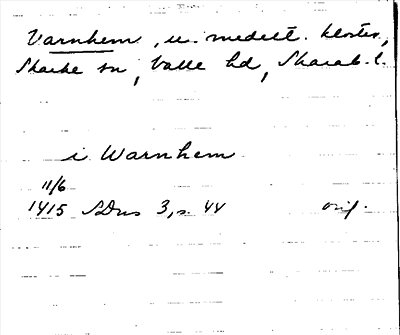 Varnhem, u. medelt. kloster,
Skarke sn, Valle hd, Skarab. l.
i Warnhem
11/6
1415 SDns 3, s. 44 orig.